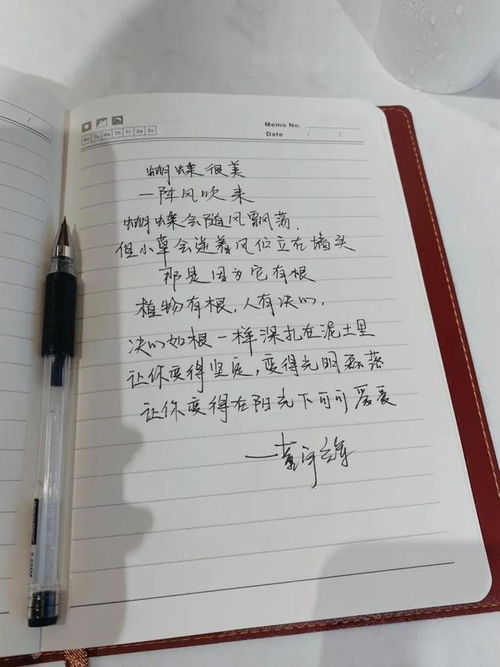 Memo No.
Mo Tu We Th Fr Sa Su
Date / /
蝴蝶很美
一阵风吹来
蝴蝶会随风飘荡.
但小草会迎着风伫立在墙头
那是因为它有根
植物有根,人有决心,
决心如根一样深扎在泥土里
让你变得坚定,变得光明磊落
让你变得在阳光下可可爱爱
——董宇辉